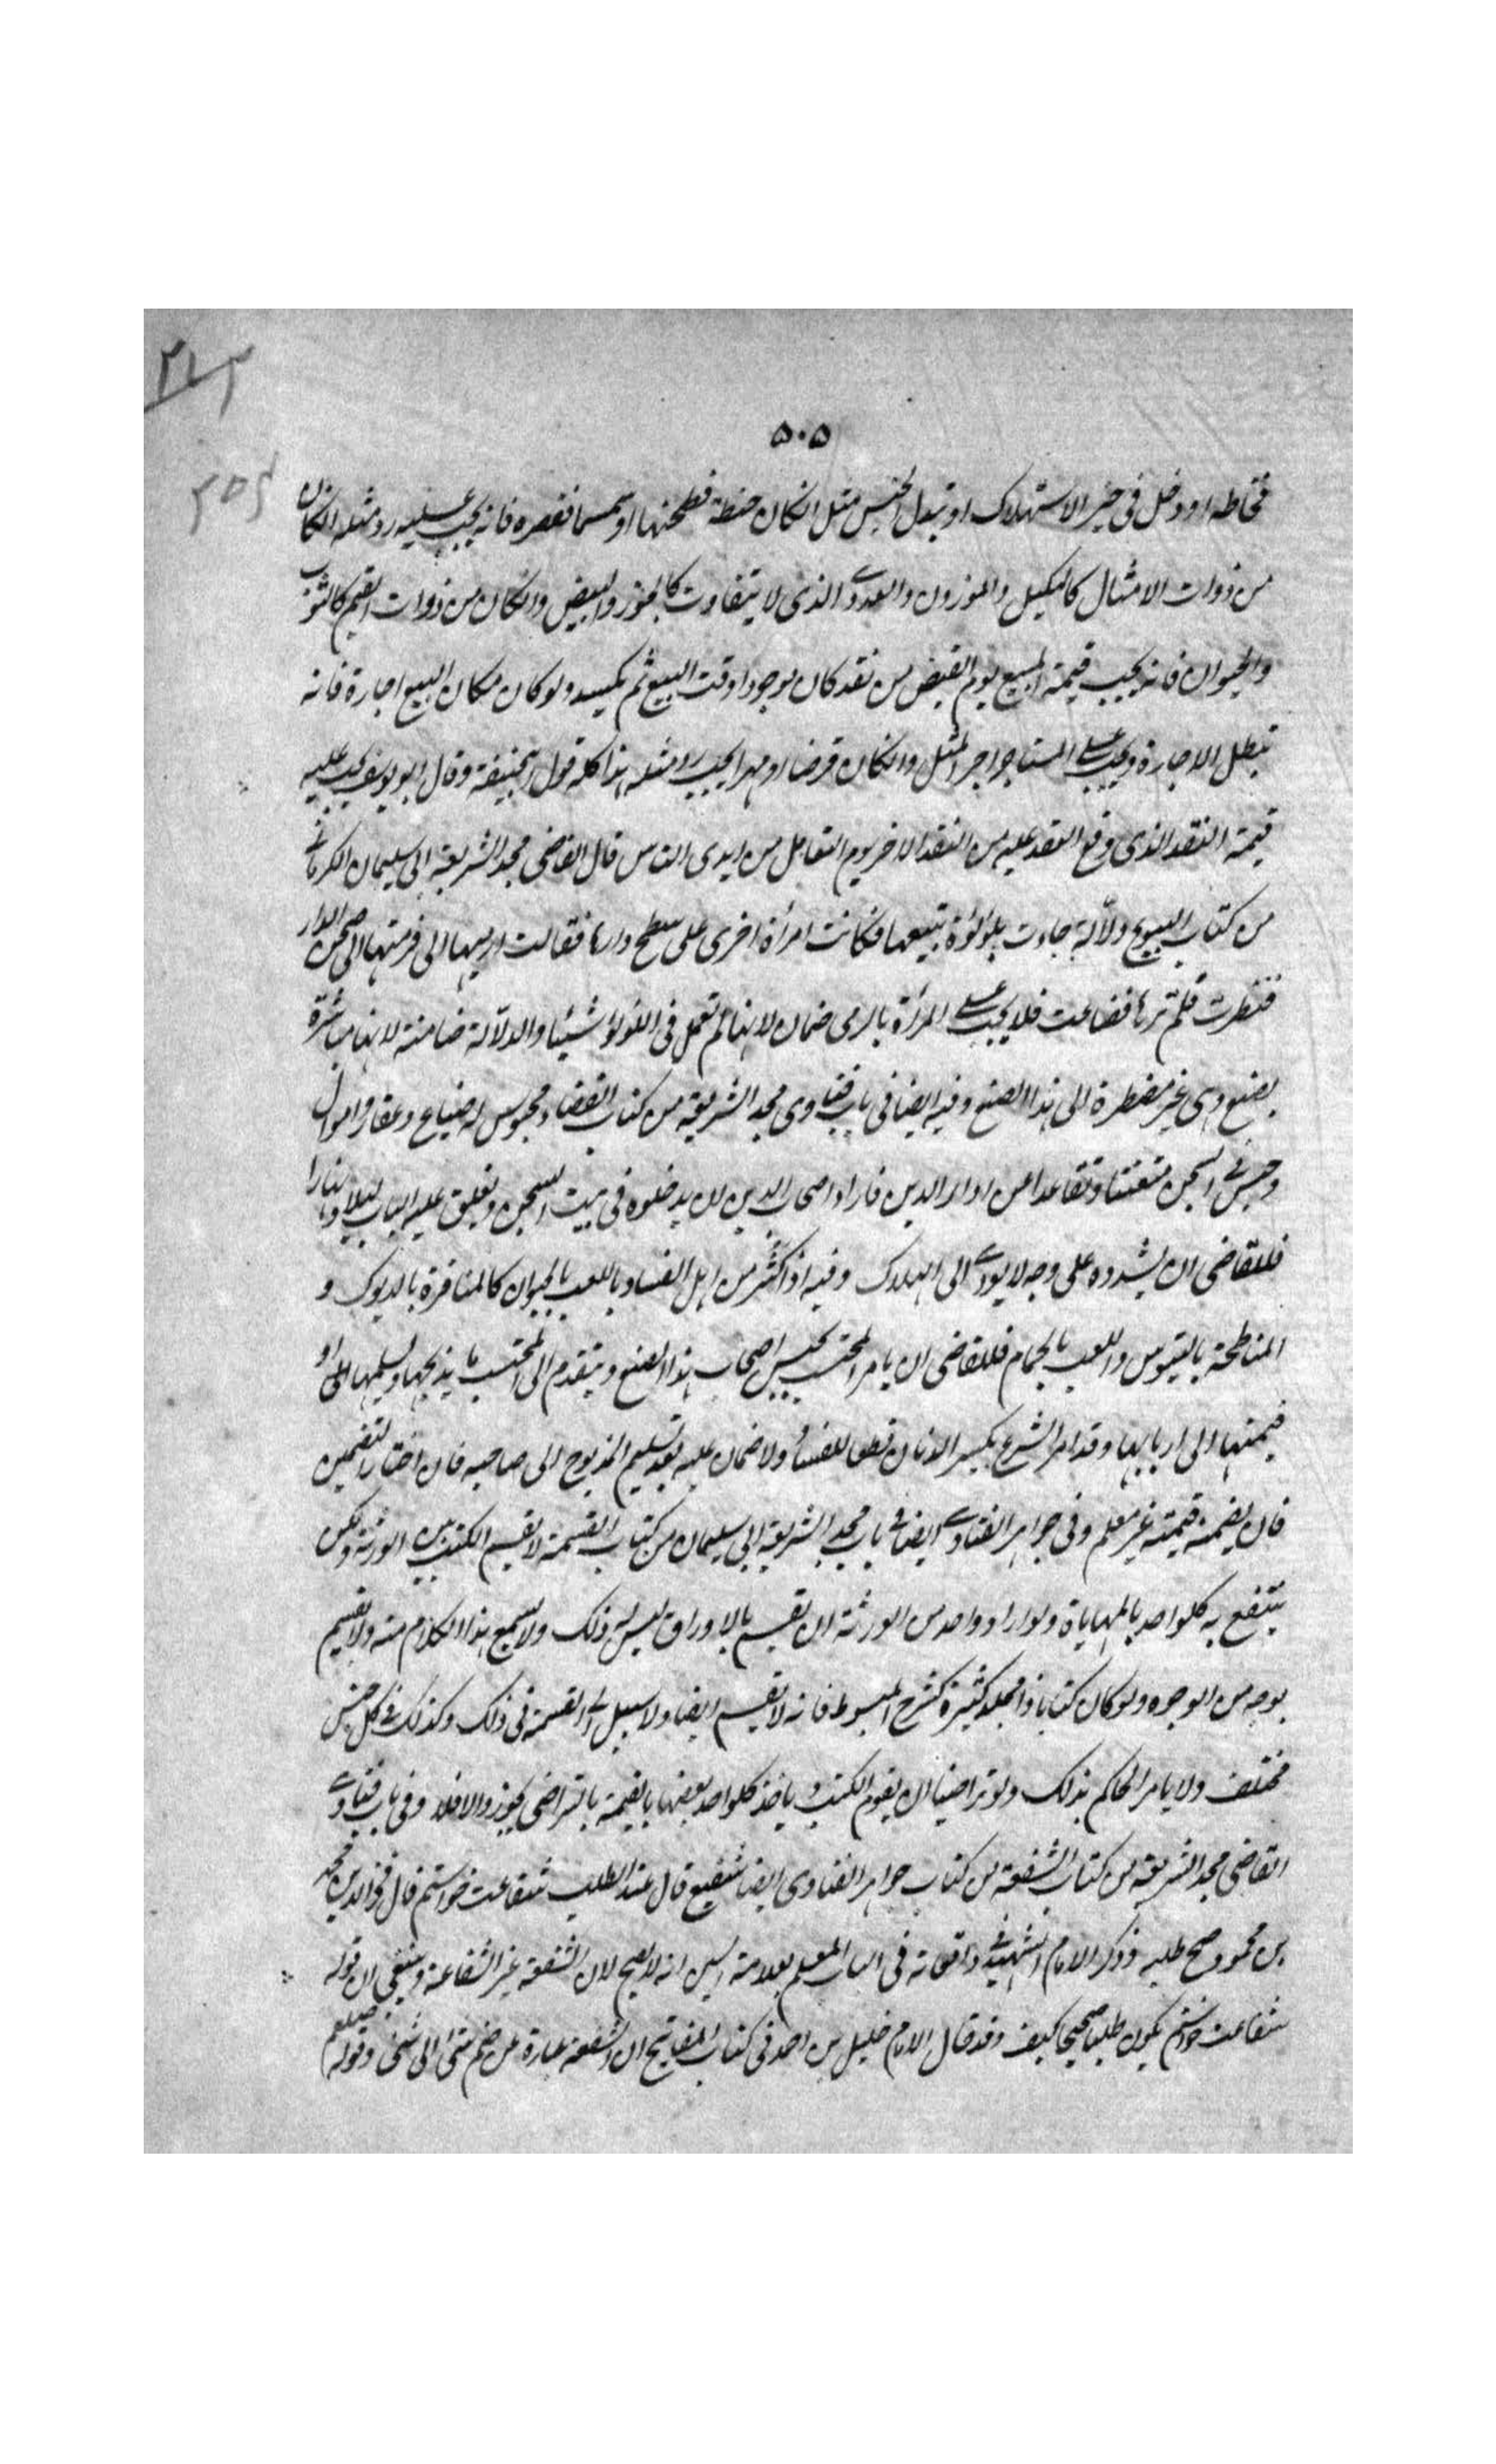 ۵۰۵
فخاطه او دخل فی حیز الاستهلاک او تبدل الجنس مثل انکان حنطة فطحنها او سمسما فعصره فانه یجب علیه رد مثله انکان
من ذوات الامثال کالمکیل والموزون والعددی الذی لا یتفاوت کالجوز والبیض وانکان من ذوات القیم کالثوب
والحیوان فانه یجب قیمة المبیع یوم القبض من نقد کان موجودا وقت البیع ثم یکسد ولو کان مکان البیع اجارة فانه
تبطل الاجارة ویجب علی المستاجر اجر المثل وانکان قرضا او مهرا یجب رد مثله هذا کله قول ابیحنیفة وقال ابو یوسف یجب علیه
قیمة النقد الذی وقع العقد علیه من النقد الاخر یوم التعامل من ایدی الناس قال القاضی مجد الشریعة ابی سلیمان الکرمانی
من کتاب البیوع دلالة جاءت بلؤلؤة تبیعها فکانت امرأة اخری علی سطح دارها فقالت ارمیها الی فرمتها الی صحن الدار
فنظرت فلم ترها فضاعت فلا یجب علی المرأة بالرمی ضمان لانها لم تعمل فی اللؤلؤ شیئا والدلالة ضامنة لانها مباشرة
بصنع وهی غیر مضطرة الی هذا الصنع وفیه ایضا فی باب فتاوی مجد الشریعة من کتاب القضاء محبوس له ضیاع وعقار واموال
وحبس فی السجن متعنتا وتقاعدا من اداء الدین فاراد اصحاب الدین ان یدخلوه فی بیت السجن ویغلق علیه الباب لیلا ونهارا
فللقاضی ان یشدده علی وجه لا یودی الی الهلاک وفیه اذا کثر من اهل الفساد باللعب بالحیوان کالمناقرة بالدیوک و
المناطحة بالتیوس واللعب بالحمام فللقاضی ان یامر المحتسب بحبس اصحاب هذا الصنع ویتقدم الی المحتسب بذبحها وتسلیمها او
قیمتها الی اربابها وقد امر الشرع بکسر الدنان قطعا للفساد ولا ضمان علیه بعد تسلیم المذبوح الی صاحبه فان اختار التضمین
فان یضمنه قیمته غیر معلم وفی جواهر الفتاوی ایضا فی باب مجد الشریعة ابی سلیمان من کتاب القسمة لا یقسم الکتب بین الورثة ولکن
ینتفع به کلواحد بالمهایاة ولو اراد واحد من الورثة ان یقسم بالاوراق لیس له ذلک ولا یسمع هذا الکلام منه ولا یقسم
بوجه من الوجوه ولو کان کتابا ذا مجلد کثیرة کشرح المبسوط فانه لا یقسم ایضا ولا سبیل الی القسمة فی ذلک وکذلک فی کل جنس
مختلف ولا یامر الحاکم بذلک ولو تراضیا ان یقوم الکتب ویاخذ کلواحد بعضها بالقیمة بالتراضی یجوز والا فلا وفی باب فتاوی
القاضی مجد الشریعة من کتاب الشفعة من کتاب جواهر الفتاوی ایضا شفیع قال عند الطلب شفاعت خواستم قال فخر الدین محمد
بن محمود صح طلبه وذکر الامام الشهید فی واقعاته فی الباب المعلم بعلامة السین انه لا یصح لان الشفعة غیر الشفاعة وینبغی ان قوله
شفاعت خواستم یکون طلبا صحیحا کیف وقد قال الامام خلیل بن احمد فی کتاب المفاتیح ان الشفعة عبارة عن ضم شئ الی شئ وقوله صلعم